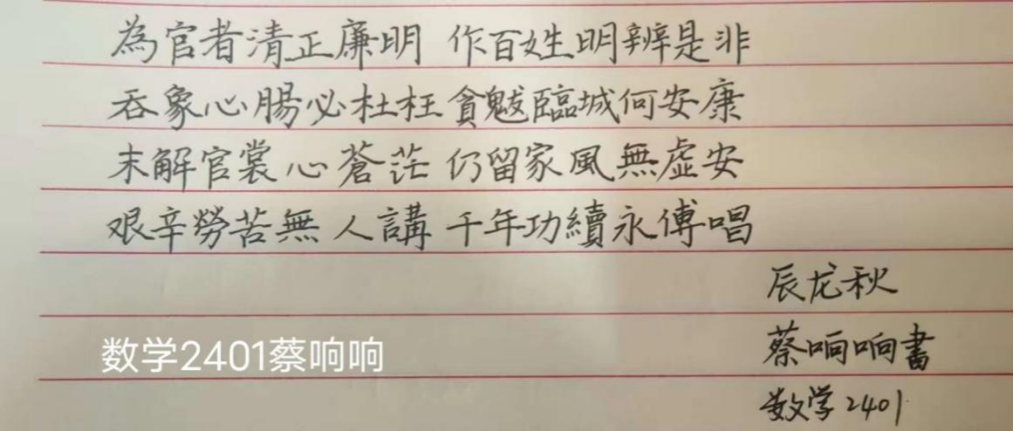 為官者清正廉明 作百姓明辨是非
吞象心腸必杜枉 貪魃臨城何安康
末解官裳心蒼茫 仍留家風無虛安
艰辛勞苦無人講 千年功續永傳唱
辰龙秋
蔡响响書
数学2401
数学2401蔡响响